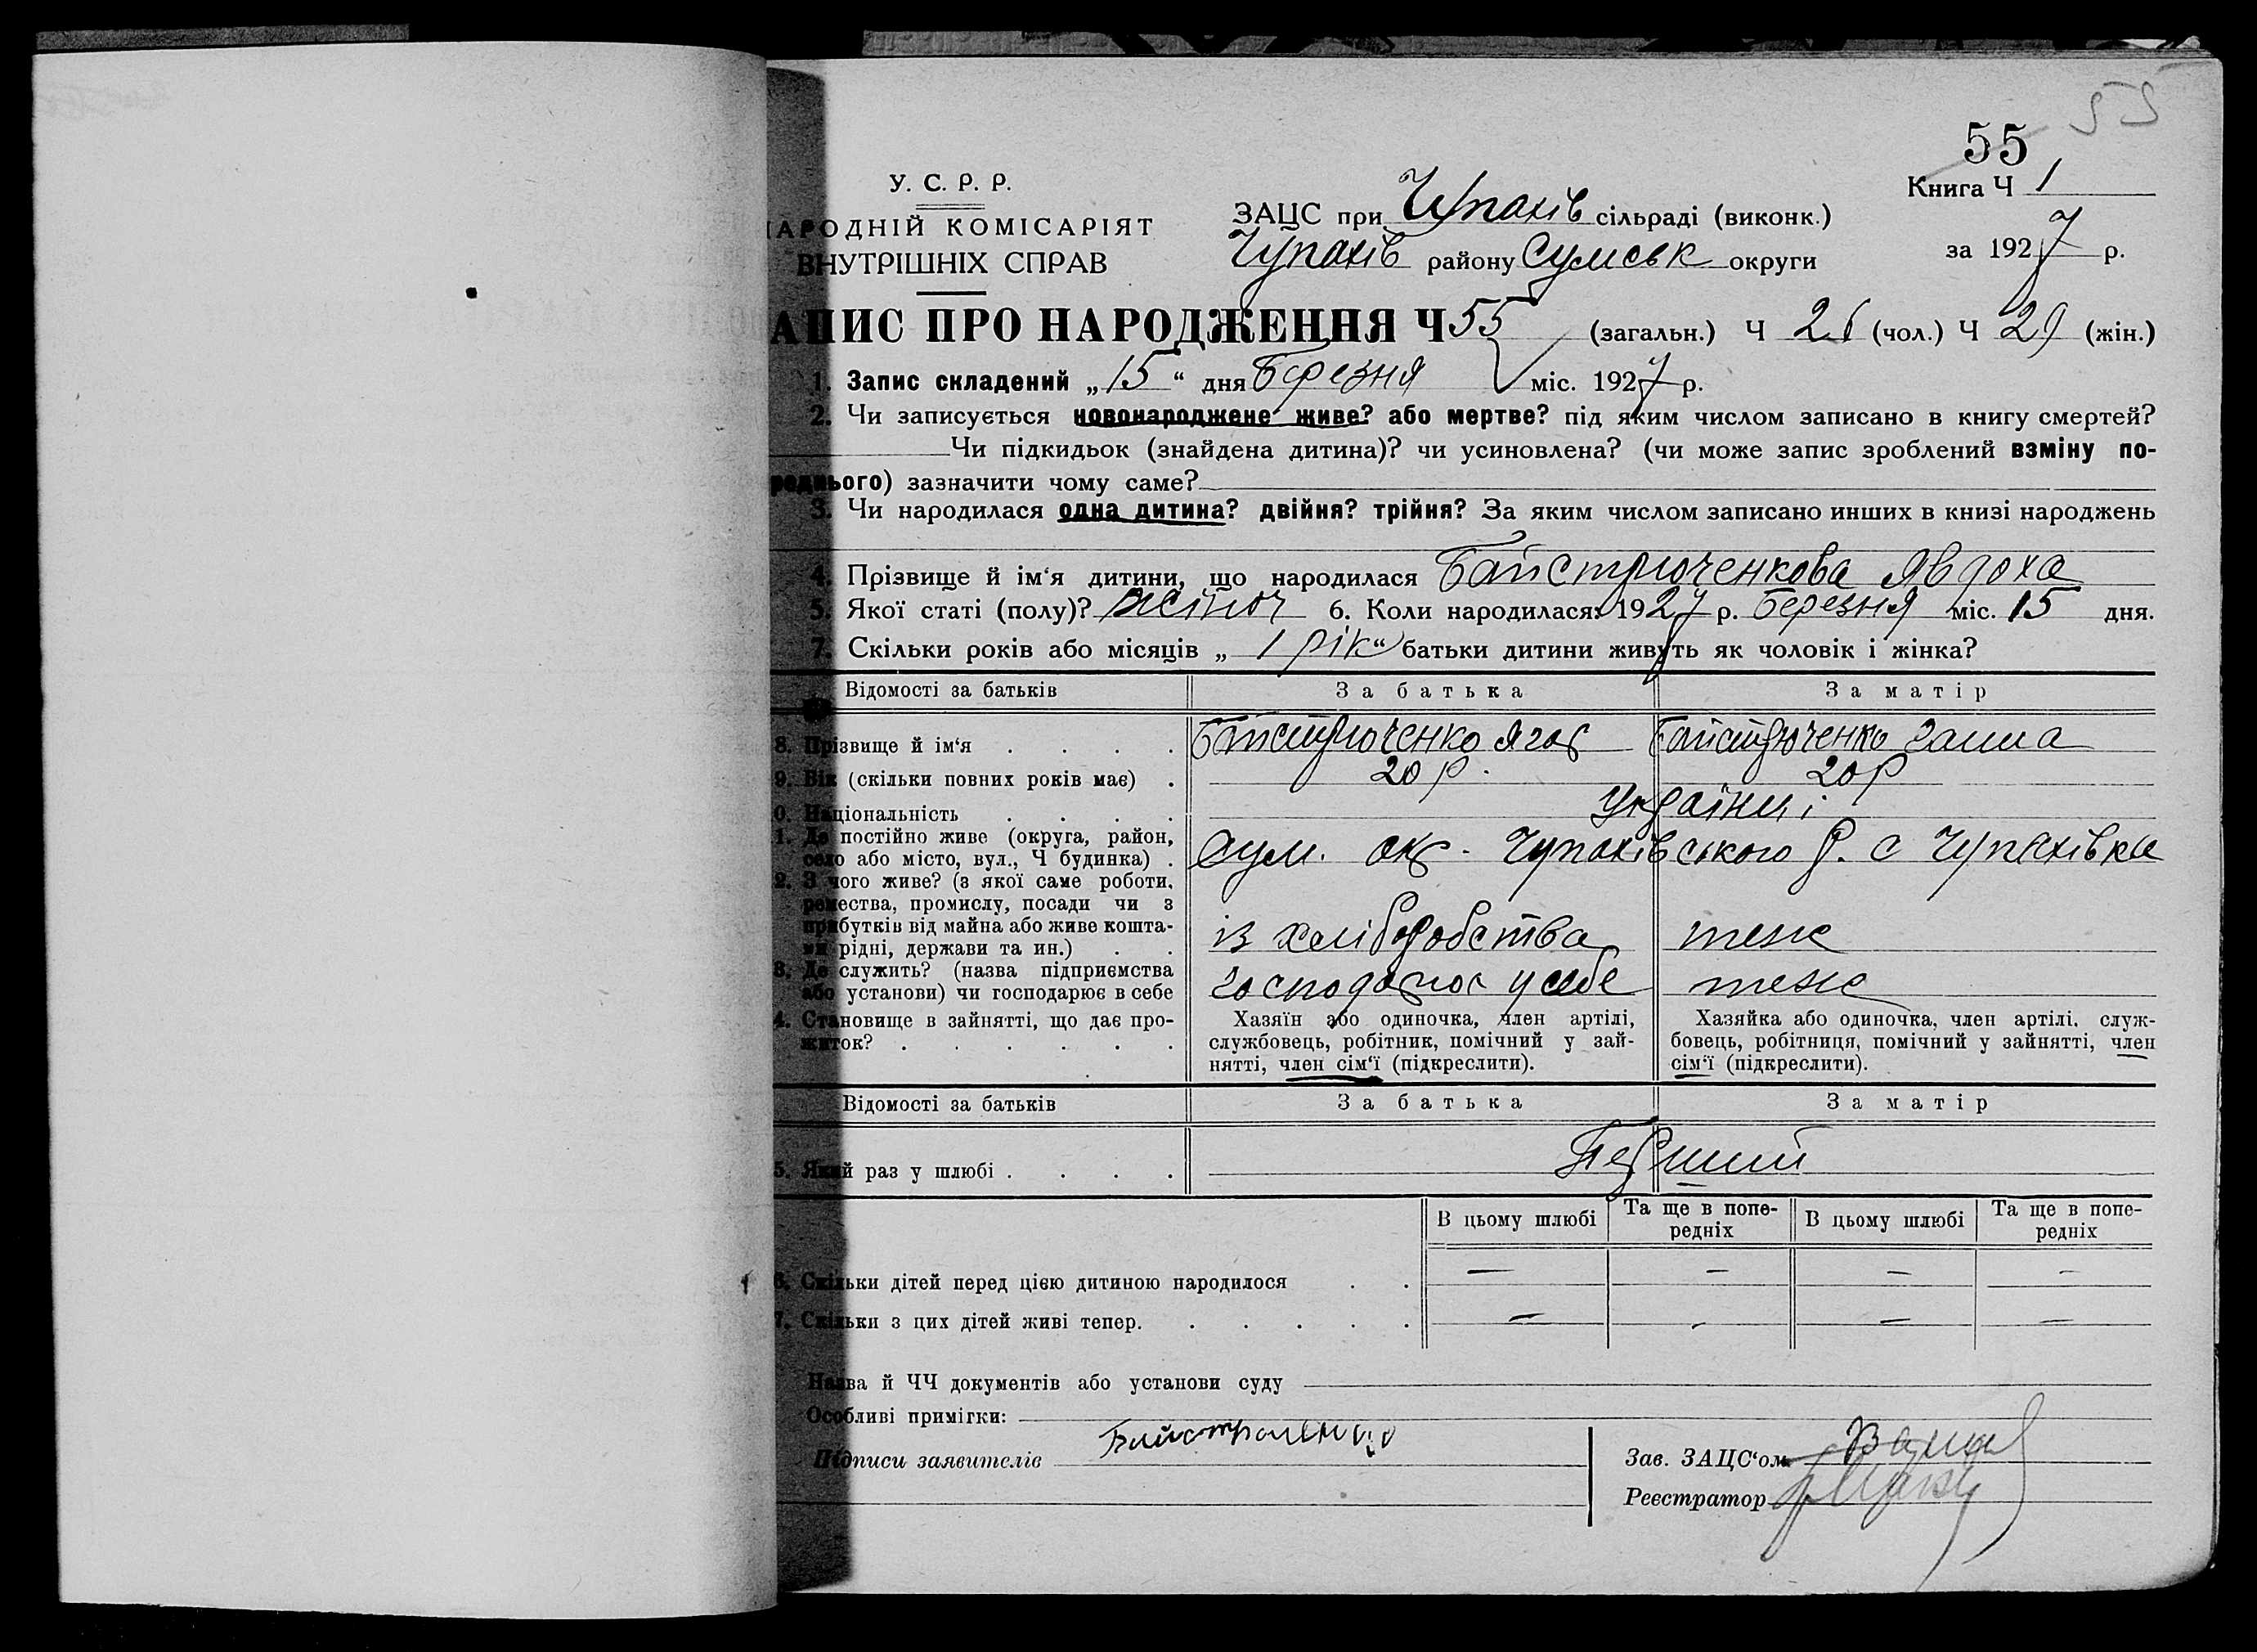 55
55
Книга Ч 1
У. С. Р. Р.
НАРОДНІЙ КОМІСАРІЯТ
ВНУТРІШНІХ СПРАВ
ЗАЦС при Чупахів сільраді (виконк.)
Чупахів району Сумськ округи
за 1927 р.
ЗАПИС ПРО НАРОДЖЕННЯ Ч 55 (загальн.) Ч 26 (чол.) Ч 29 (жін.)
1. Запис складений „15“ дня Березня міс. 1927 р.
2. Чи записується новонароджене живе? або мертве? під яким числом записано в книгу смертей?
Чи підкидьок (знайдена дитина)? чи усиновлена? (чи може запис зроблений взміну по-
реднього) зазначити чому саме?
3. Чи народилася одна дитина? двійня? трійня? За яким числом записано инших в книзі народжень
4. Прізвище й ім‘я дитини, що народилася Байстрюченкова Явдоха
5. Якої статі (полу)? жіноч 6. Коли народилася: 1927 р. Березня міс. 15 дня.
7. Скільки років або місяців „1 рік“ батьки дитини живуть як чоловік і жінка?
Відомості за батьків За батька За матір
8. Прізвище й ім‘я . . . . Байстрюченко Ягор Байстрюченко Ганна
9. Вік (скільки повних років має) . 20 р. 20 р
0. Національність . . . . Українці
1. Де постійно живе (округа, район,
село або місто, вул., Ч будинка) . Сум. окр. Чупахівського р. с Чупахівка
2. З чого живе? (з якої саме роботи,
ремества, промислу, посади чи з
прибутків від майна або живе кошта-
ми рідні, держави та ин.) . . із хліборобства теж
3. Де служить? (назва підприємства
або установи) чи господарює в себе господарює у себе теж
4. Становище в зайнятті, що дає про-
житок? . . . . . .
Хазяїн або одиночка, член артілі,
службовець, робітник, помічний у зай-
нятті, член сім‘ї (підкреслити).
Хазяйка або одиночка, член артілі, служ-
бовець, робітниця, помічний у зайнятті, член
сім‘ї (підкреслити).
Відомості за батьків За батька За матір
5. Який раз у шлюбі . . . . Перший
В цьому шлюбі Та ще в попе-редніх В цьому шлюбі Та ще в попе-редніх
6. Скільки дітей перед цією дитиною народилося . . — — — —
7. Скільки з цих дітей живі тепер. . . . . . — - — —
Назва й ЧЧ документів або установи суду
Особливі примітки:
Підписи заявителів Байстрюченко
Зав. ЗАЦС‘ом
Реєстратор